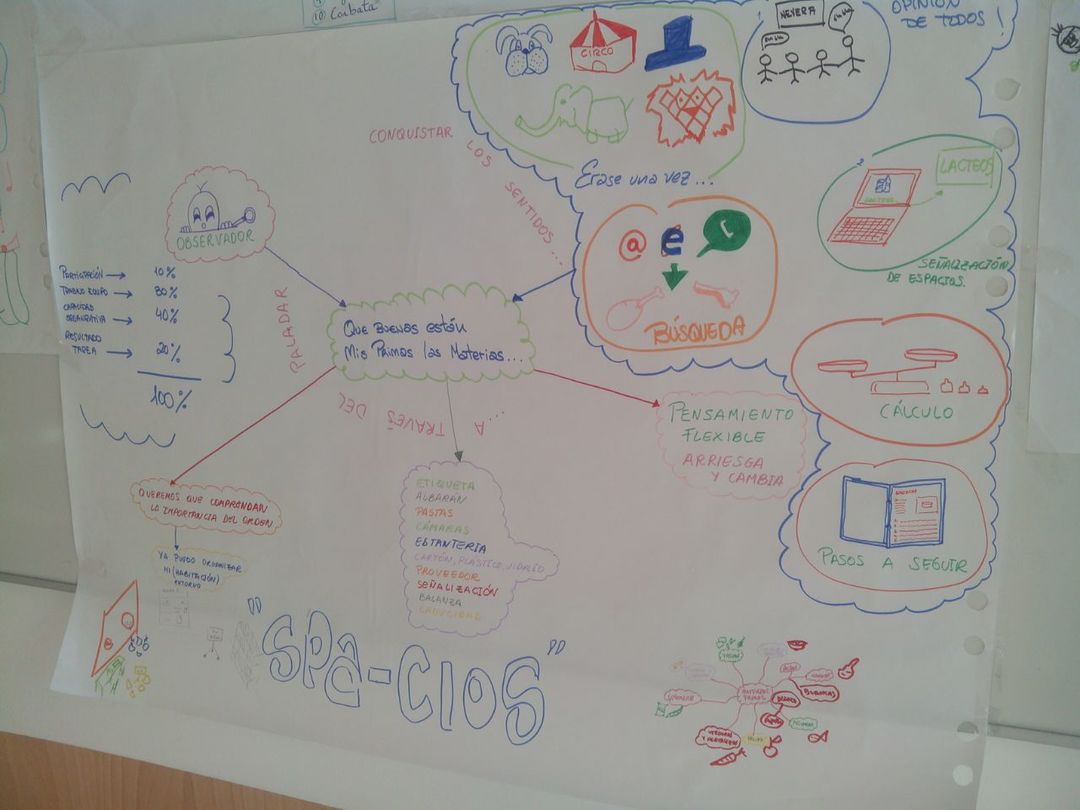 10 Corbata
OPINIÓN
DE TODOS !
NEVERA
CIRCO
Erase una vez...
CONQUISTAR LOS SENTIDOS...
LACTEOS
SEÑALIZACIÓN
DE ESPACIOS.
@ e
BÚSQUEDA
OBSERVADOR
PARTICIPACIÓN → 10%
TRABAJO EQUIPO → 30%
CAPACIDAD
ORGANIZATIVA → 40%
RESULTADO
TAREA → 20%
100%
PALADAR
Que Buenas están
Mis Primas las Materias...
A TRAVES DEL
CÁLCULO
PENSAMIENTO
FLEXIBLE
ARRIESGA
Y CAMBIA
PASOS A SEGUIR
QUEREMOS QUE COMPRENDAN
LA IMPORTANCIA DEL ORDEN
YA PUEDO ORGANIZAR
MI (HABITACIÓN)
ENTORNO
ETIQUETA
ALBARÁN
PASTAS
CÁMARAS
ESTANTERIA
CARTÓN, PLÁSTICO, VIDRIO
PROVEEDOR
SEÑALIZACIÓN
BALANZA
CADUCIDAD
"SPA-CIOS"